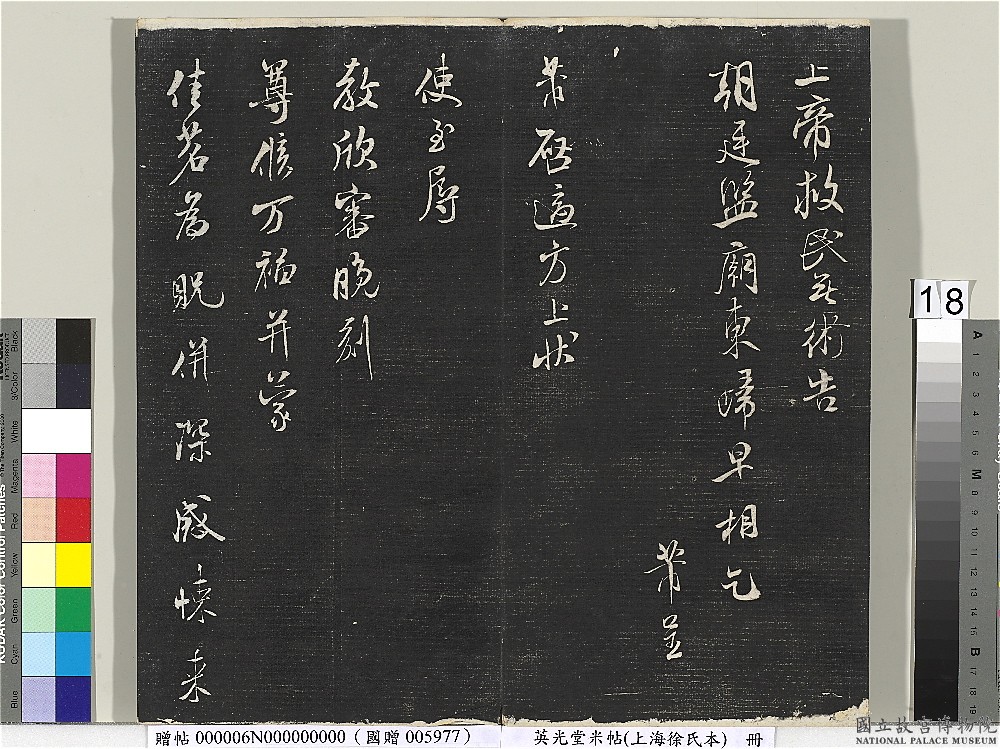 上帝救民無術告
朝廷監廟東歸早相乞
芾呈
芾啓適方上狀
使至辱
教欣審晚刻
尊候万福并蒙
佳茗為貺併深感悚来
18
贈帖 000006N000000000 (國贈 005977)
英光堂米帖(上海徐氏本) 冊
國立故宮博物院
NATIONAL PALACE MUSEUM
KODAK Color Control Patches
Blue
Cyan
Green
Yellow
Red
Magenta
White
3/Color
Black
A 1 2 3 4 5 6 M 8 9 10 11 12 13 14 15 B 17 18 19